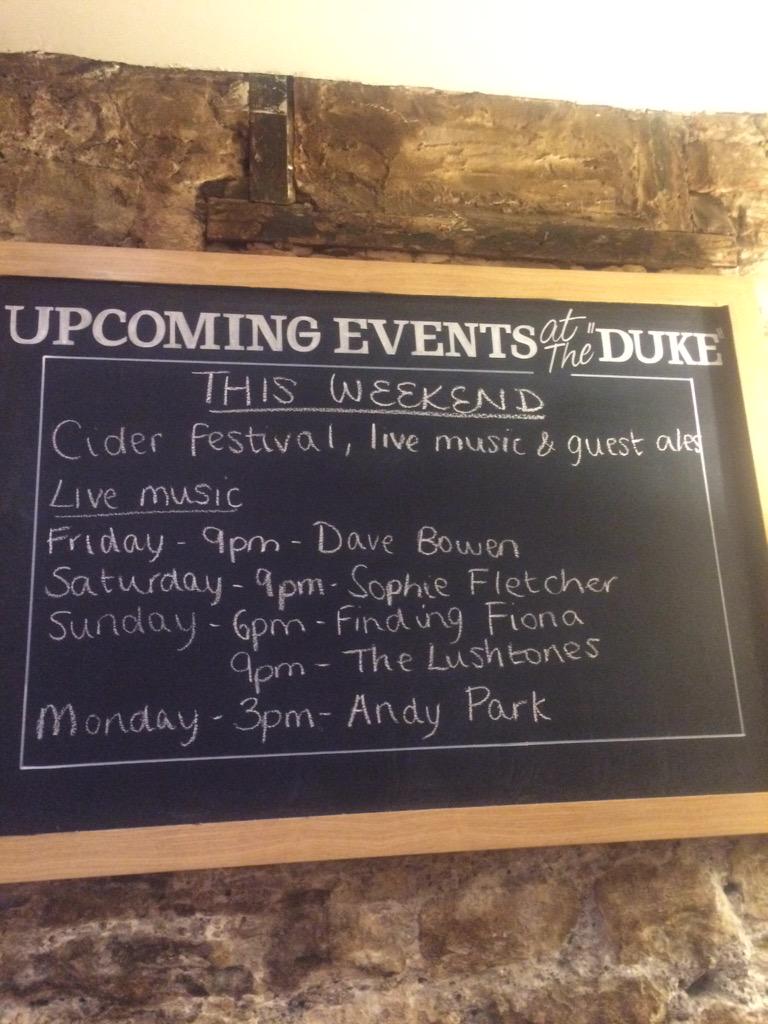 UPCOMING EVENTS at The "DUKE"
THIS WEEKEND
Cider festival, live music & guest ales
Live music
Friday - 9pm - Dave Bowen
Saturday - 9pm - Sophie Fletcher
Sunday - 6pm - Finding Fiona
9pm - The Lushtones
Monday - 3pm - Andy Park